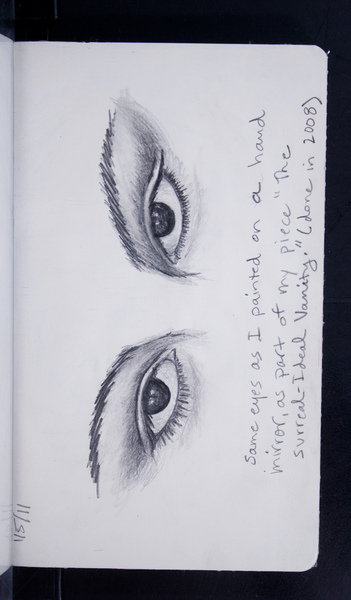 Same eyes as I painted on a hand
mirror, as part of my piece "The
surreal-Ideal Vanity." (done in 2008)
1/5/11